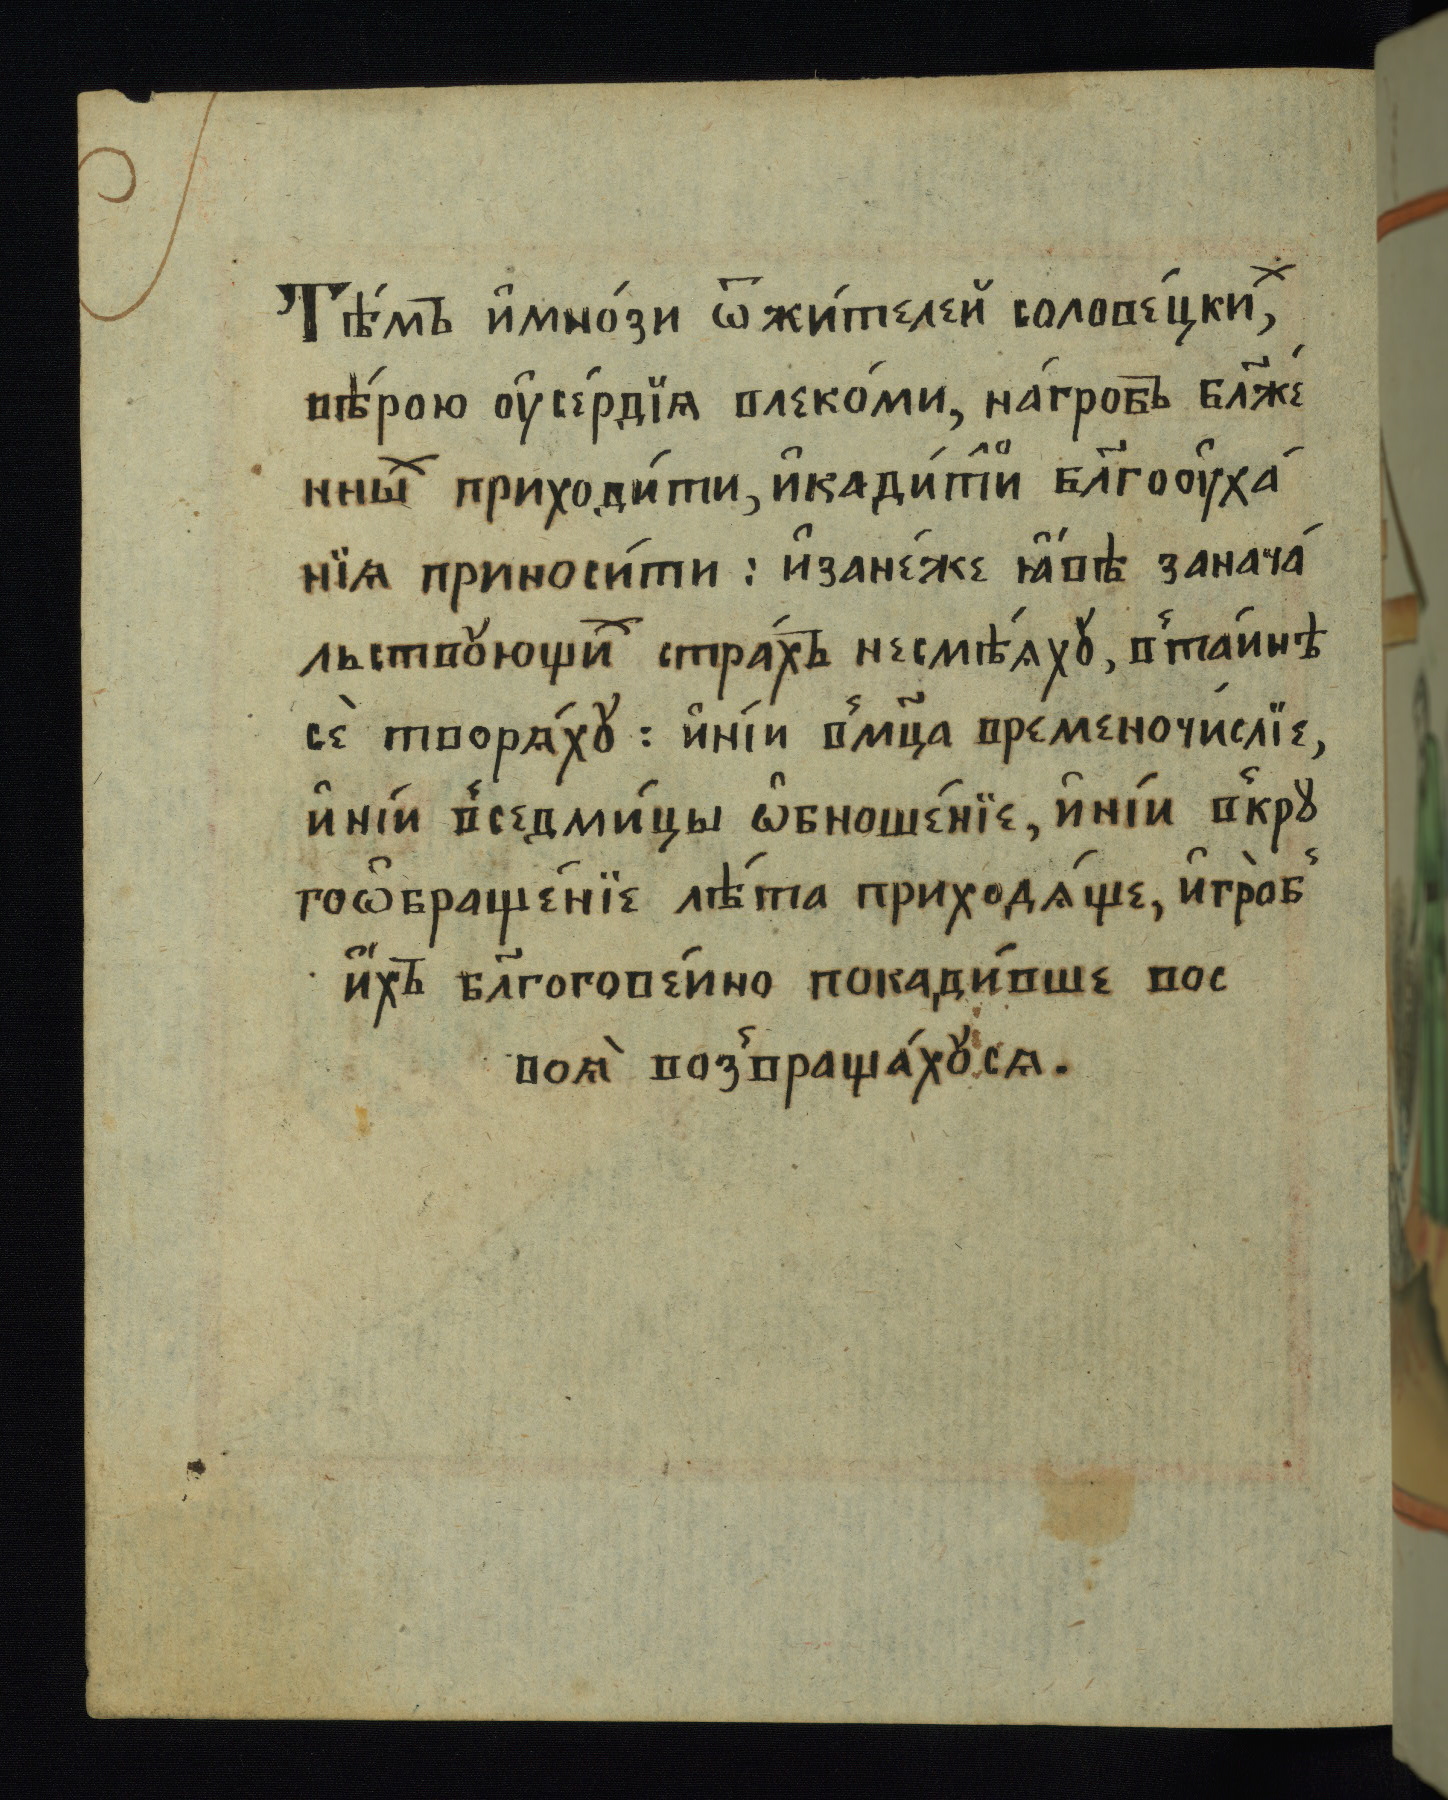 Тѣ́мъ и҆мно́зи ѿжи́телей солове́цкиⷯ,
вѣ́рою оу҆се́рдїѧ влеко́ми, на́гробъ бл҃же́
нныⷯ приходи́ти, и҆кади́тⷪ҇и бл҃гооу҆ха́
нїѧ приноси́ти : и҆зане́же ꙗ҆́вѣ занача́
льствꙋющиⷯ стра́хъ несмѣ́ѧхꙋ, в̾таи́нѣ
сѐ творѧ́хꙋ : и҆ні́и в̾мц҃а временочи́слїе,
и҆ні́и в̾седми́цы ѡ҆бноше́нїе, и҆ні́и в̾крꙋ
гоѡ҆браще́нїе лѣ́та приходѧ́ще, и҆гро̀б̾
и҆́хъ бл҃гогове́йно покади́вше вос
воѧ̀ воз̾враща́хꙋсѧ.